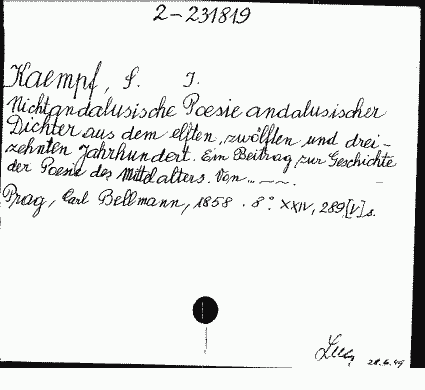 2-231819
Kaempf, S. I.
Nichtandalusische Poesie andalusischer
Dichter aus dem elften, zwölften und drei-
zehnten Jahrhundert. Ein Beitrag zur Geschichte
der Poesie des Mittelalters. Von ... —.—.
Prag, Carl Bellmann, 1858. 8° XXIV, 289,[V] s.
28.6.49